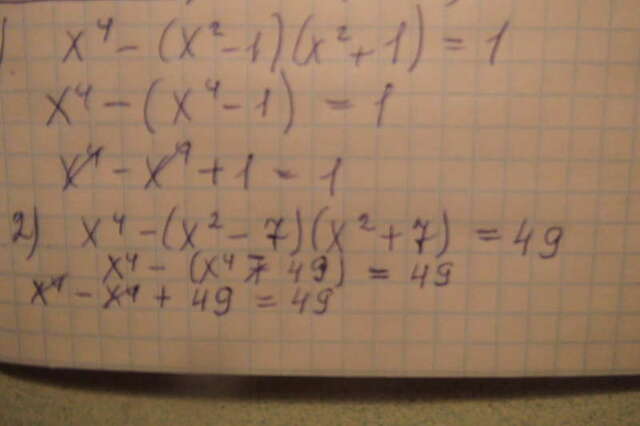 ) x⁴ - (x² - 1)(x² + 1) = 1
x⁴ - (x⁴ - 1) = 1
x⁴ - x⁴ + 1 = 1
2) x⁴ - (x² - 7)(x² + 7) = 49
x⁴ - (x⁴ - 49) = 49
x⁴ - x⁴ + 49 = 49